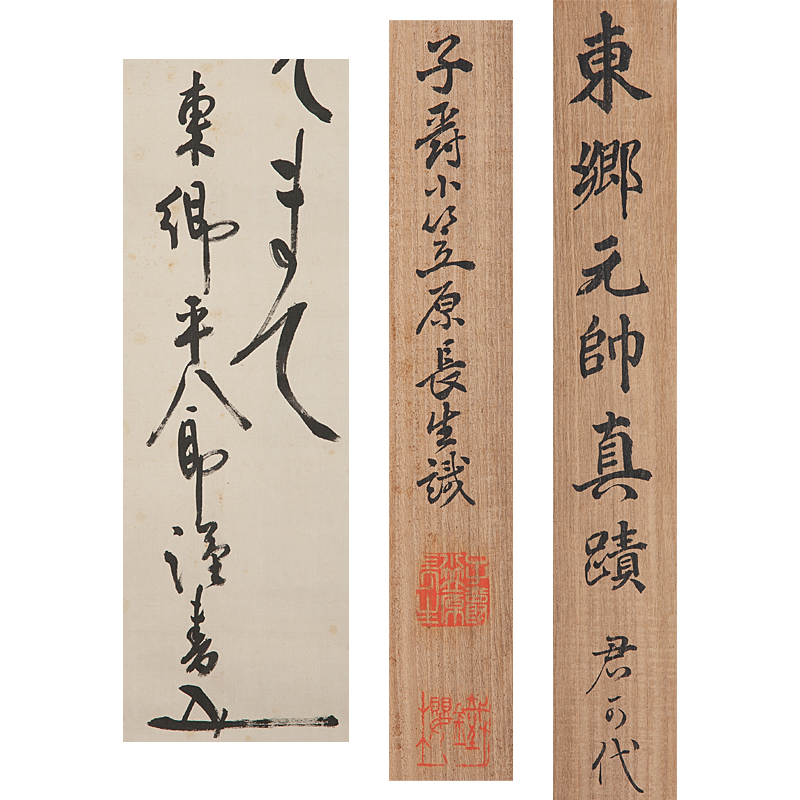 東鄉元帥真蹟 君可代
子爵小笠原長生識
てまて
東郷平八郎謹書